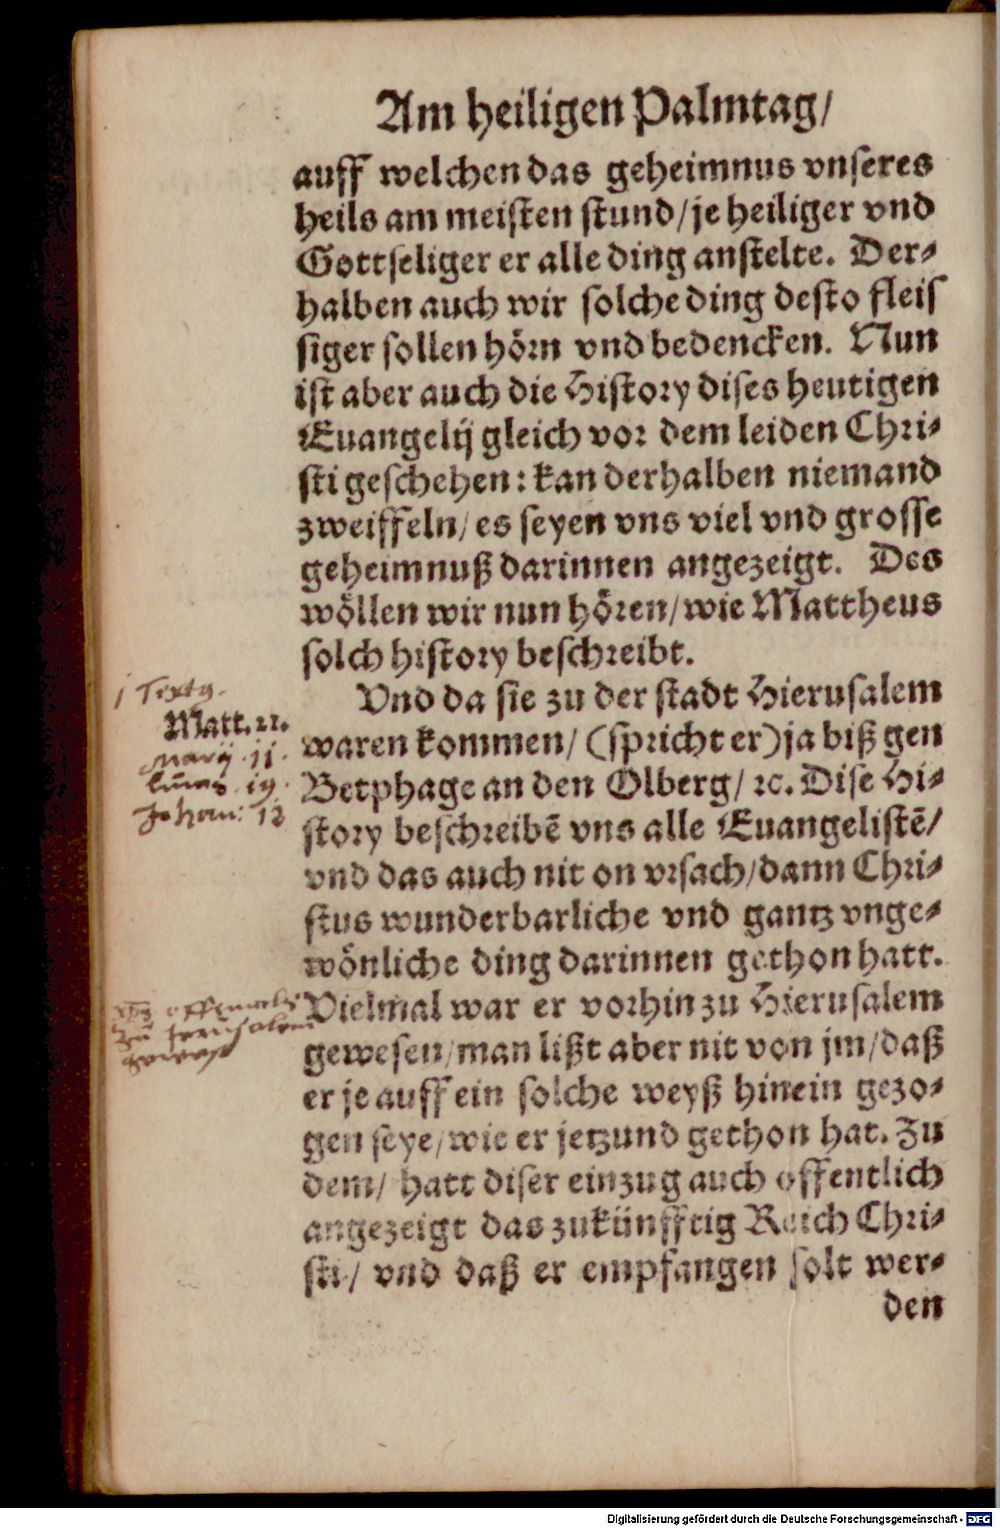 Am heiligen Palmtag/
auff welchen das geheimnus vnseres
heils am meisten stund/je heiliger vnd
Gottseliger er alle ding anstelte. Der-
halben auch wir solche ding desto fleis
siger sollen hörn vnd bedencken. Nun
ist aber auch die History dises heutigen
Euangelij gleich vor dem leiden Chri-
sti geschehen: kan derhalben niemand
zweiffeln/ es seyen vns viel vnd grosse
geheimnuß darinnen angezeigt. Des
wöllen wir nun hören/ wie Mattheus
solch history beschreibt.
j Textg.
Matt. 21.
Marij. 11.
lucas. 19.
Johan: 12
Vnd da sie zu der stadt Hierusalem
waren kommen/ (spricht er) ja biß gen
Betphage an den Olberg/ ꝛc. Dise Hi-
story beschreibē vns alle Euangelistē/
vnd das auch nit on vrsach/dann Chri-
stus wunderbarliche vnd gantz vnge-
wönliche ding darinnen gethon hatt.
offtmals
zu Jerusalem
gewest
Vielmal war er vorhin zu Hierusalem
gewesen/man lißt aber nit von jm/daß
er je auff ein solche weyß hinein gezo-
gen seye/wie er jetzund gethon hat. Zu
dem/ hatt diser einzug auch offentlich
angezeigt das zukünfftig Reich Chri-
sti/ vnd daß er empfangen solt wer-
den
Digitalisierung gefördert durch die Deutsche Forschungsgemeinschaft - DFG